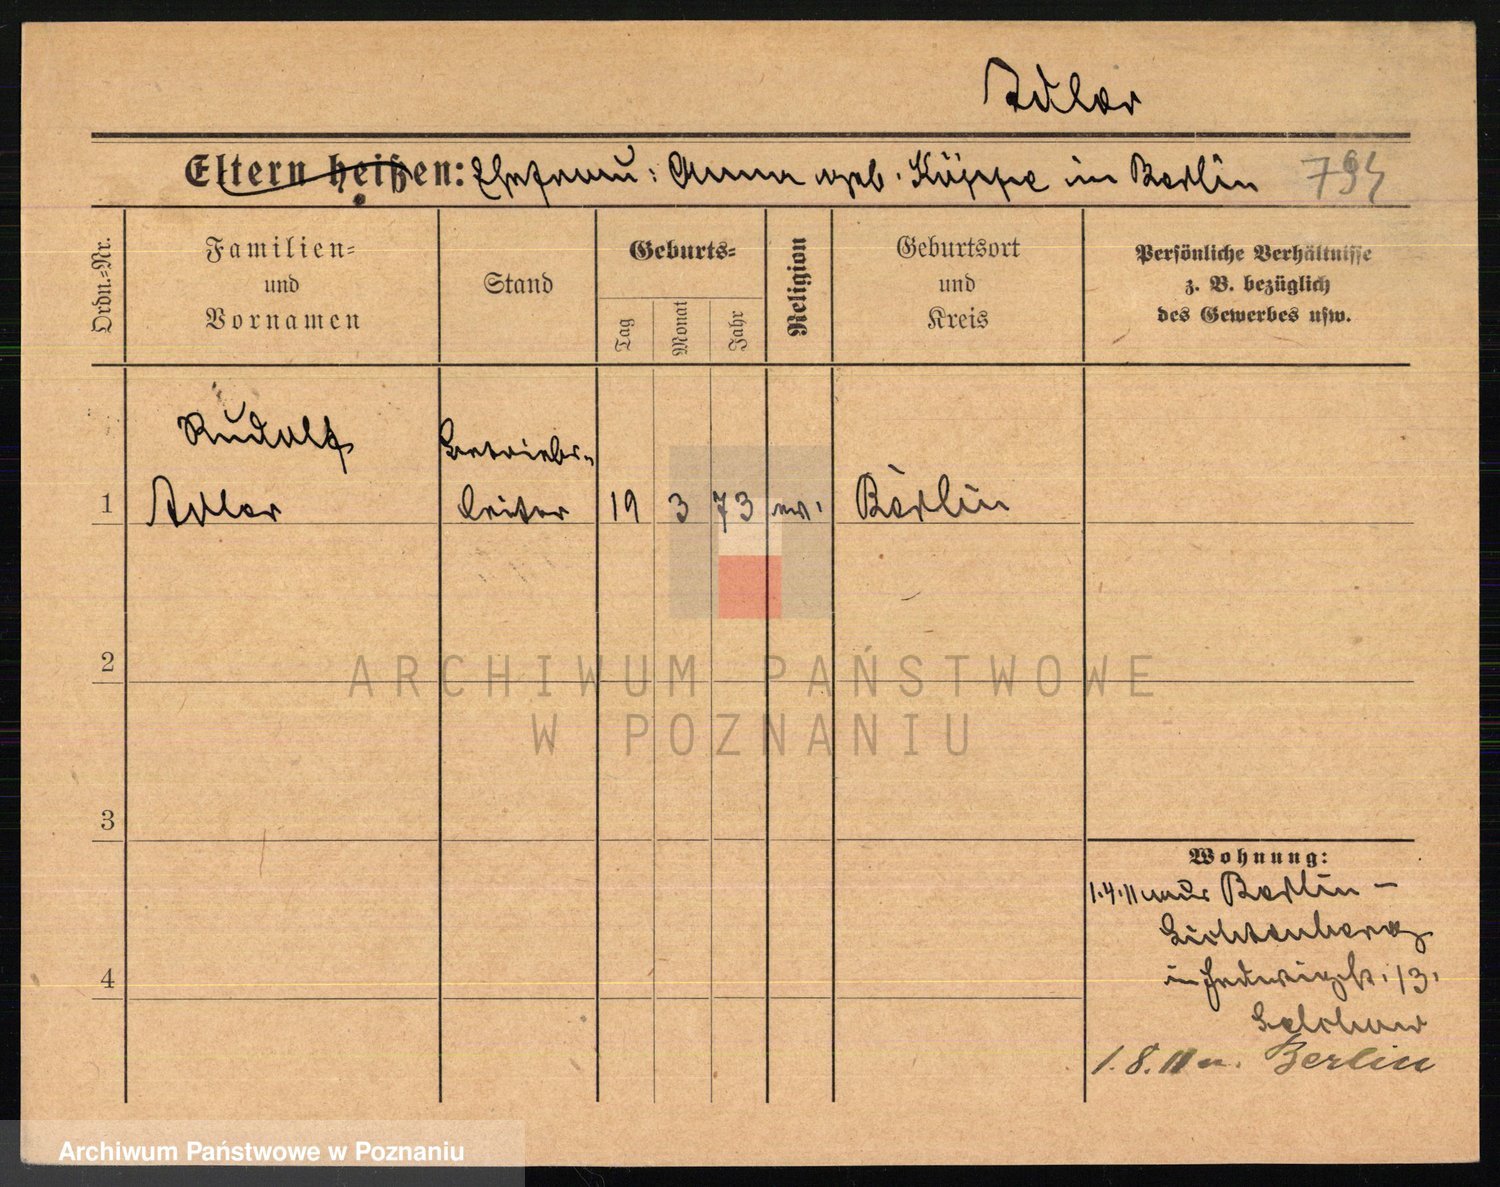 Adler
Eltern heißen: Ehefrau: Anna geb. Köppe in Berlin 794
Ordn.-Nr.
Familien-
und
Vornamen
Stand
Geburts-
Tag
Monat
Jahr
Religion
Geburtsort
und
Kreis
Persönliche Verhältnisse
z. B. bezüglich
des Gewerbes usw.
Rudolf
Adler
Betriebs-
leiter
1 19 3 73 ev. Berlin
2
3
4
Wohnung:
1.4.11 aus Berlin-
Lichtenberg
in Hedwigstr. 13.
1.8.11 n. Berlin
ARCHIWUM PAŃSTWOWE
W POZNANIU
Archiwum Państwowe w Poznaniu